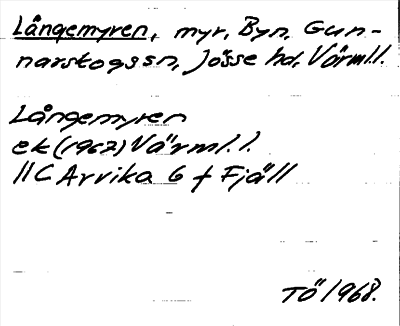 Långemyren, myr, Byn, Gun-
narskogssn, Jösse hd, Värml.l.
Långemyren
ek (1967) Värml.l.
11C Arvika 6 f Fjäll
TÖ 1968.